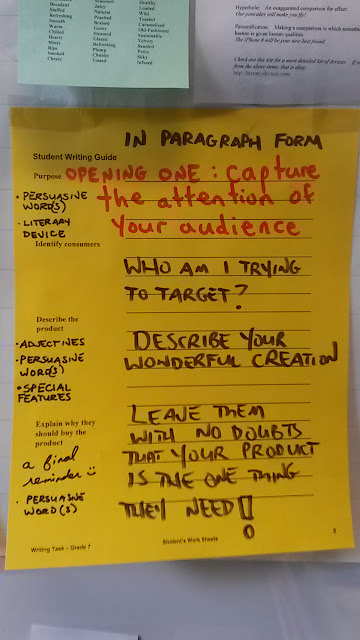 Decadent Juicy Loaded
Stuffed Natural Wild
Refreshing Poached Toasted
Smooth Braised Caramelized
Warm Gooey Old-Fashioned
Chilled Steamed Sustainable
Hearty Glazed Velvety
Minty Refreshing Sautéed
Ripe Plump Petite
Smoked Chunky Silky
Cheesy Tossed Infused
Hyperbole: An exaggerated comparison for effect
Our pancakes will make you fly!
Personification: Making a comparison in which something
human is given human qualities.
The iPhone 6 will be your new best friend.
Check out this site for a more detailed list of devices.
from the above items, that is okay.
IN PARAGRAPH FORM
Student Writing Guide
Purpose OPENING ONE: Capture
• PERSUASIVE WORD(S)
the attention of
• LITERARY DEVICE
Your audience
Identify consumers
WHO AM I TRYING
TO TARGET?
Describe the
product
• ADJECTIVES
DESCRIBE YOUR
• PERSUASIVE WORD(S)
WONDERFUL CREATION
• SPECIAL FEATURES
Explain why they
should buy the
product
LEAVE THEM
WITH NO DOUBTS
a final
THAT YOUR PRODUCT
reminder
IS THE ONE THING
• PERSUASIVE WORD(S)
THEY NEED!
Writing Task – Grade 7 Student's Work Sheets 3